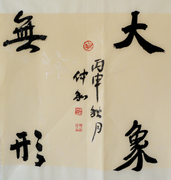 大象
無形
丙申秋月
仲和